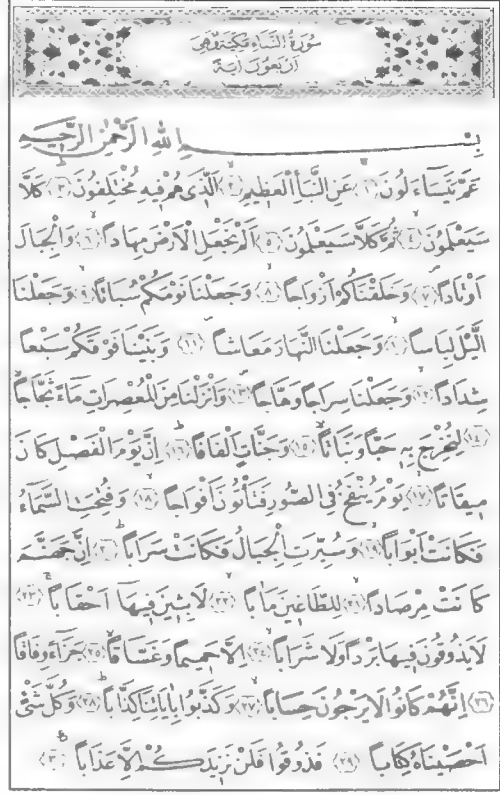 سُورَةُ النَّبَاءِ مَكِّيَّةٌ وَهِيَ
اَرْبَعُونَ اٰيَةً
بِسْمِ اللّٰهِ الرَّحْمٰنِ الرَّحِيمِ
عَمَّ يَتَسَٓاءَلُونَ ﴿١﴾ عَنِ النَّبَأِ الْعَظِيمِ ﴿٢﴾ اَلَّذِى هُمْ فِيهِ مُخْتَلِفُونَ ﴿٣﴾ كَلَّا
سَيَعْلَمُونَ ﴿٤﴾ ثُمَّ كَلَّا سَيَعْلَمُونَ ﴿٥﴾ اَلَمْ نَجْعَلِ الْاَرْضَ مِهَاداً ﴿٦﴾ وَالْجِبَالَ
اَوْتَاداً ﴿٧﴾ وَخَلَقْنَاكُمْ اَزْوَاجاً ﴿٨﴾ وَجَعَلْنَا نَوْمَكُمْ سُبَاتاً ﴿٩﴾ وَجَعَلْنَا
الَّيْلَ لِبَاساً ﴿١٠﴾ وَجَعَلْنَا النَّهَارَ مَعَاشاً ﴿١١﴾ وَبَنَيْنَا فَوْقَكُمْ سَبْعاً
شِدَاداً ﴿١٢﴾ وَجَعَلْنَا سِرَاجاً وَهَّاجاً ﴿١٣﴾ وَاَنْزَلْنَا مِنَ الْمُعْصِرَاتِ مَٓاءً ثَجَّاجاً
﴿١٤﴾ لِنُخْرِجَ بِهِ حَبّاً وَنَبَاتاً ﴿١٥﴾ وَجَنَّاتٍ اَلْفَافاً ﴿١٦﴾ اِنَّ يَوْمَ الْفَصْلِ كَانَ
مِيقَاتاً ﴿١٧﴾ يَوْمَ يُنْفَخُ فِى الصُّورِ فَتَأْتُونَ اَفْوَاجاً ﴿١٨﴾ وَفُتِحَتِ السَّمَٓاءُ
فَكَانَتْ اَبْوَاباً ﴿١٩﴾ وَسُيِّرَتِ الْجِبَالُ فَكَانَتْ سَرَاباً ﴿٢٠﴾ اِنَّ جَهَنَّمَ
كَانَتْ مِرْصَاداً ﴿٢١﴾ لِلطَّاغِينَ مَاٰباً ﴿٢٢﴾ لَابِثِينَ فِيهَٓا اَحْقَاباً ﴿٢٣﴾
لَايَذُوقُونَ فِيهَا بَرْداً وَلَا شَرَاباً ﴿٢٤﴾ اِلَّا حَمِيماً وَغَسَّاقاً ﴿٢٥﴾ جَزَٓاءً وِفَاقاً
﴿٢٦﴾ اِنَّهُمْ كَانُوا لَايَرْجُونَ حِسَاباً ﴿٢٧﴾ وَكَذَّبُوا بِاٰيَاتِنَا كِذَّاباً ﴿٢٨﴾ وَكُلَّ شَىْءٍ
اَحْصَيْنَاهُ كِتَاباً ﴿٢٩﴾ فَذُوقُوا فَلَنْ نَزِيدَكُمْ اِلَّا عَذَاباً ﴿٣٠﴾